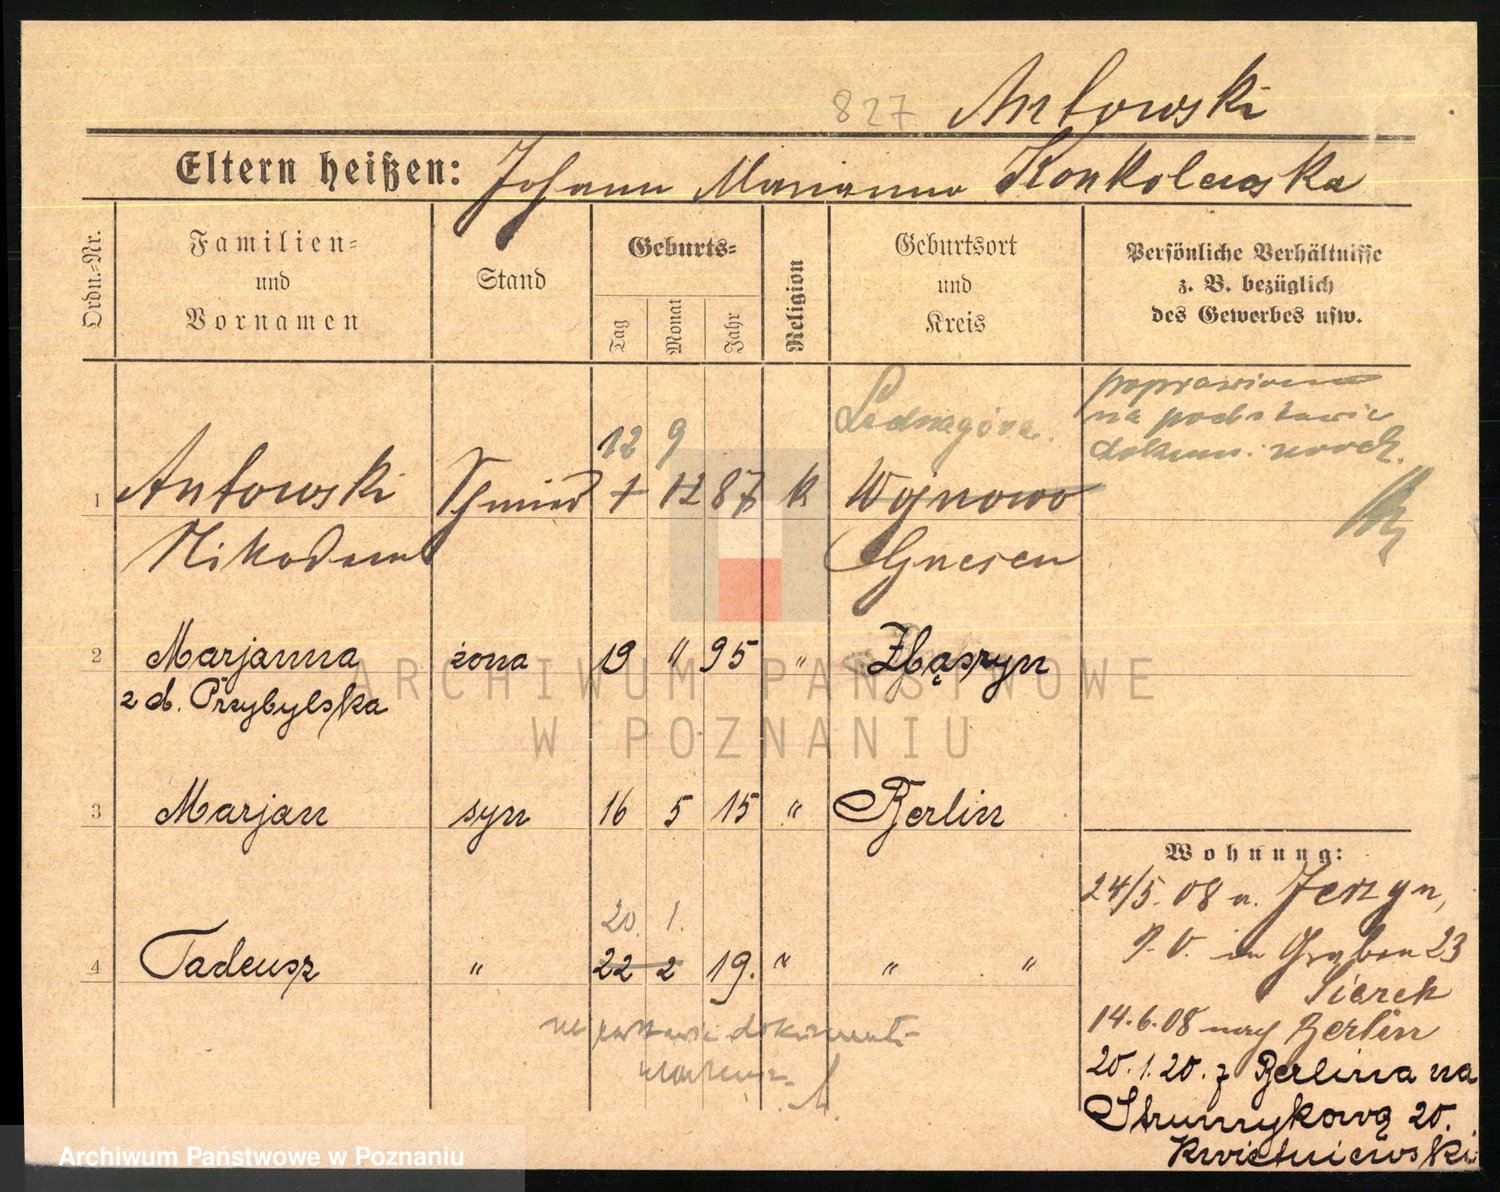 827 Antowski
Eltern heißen: Johann Marianna Konkolewska
Ordn.-Nr.
Familien=
und
Vornamen
Stand
Geburts=
Tag
Monat
Jahr
Religion
Geburtsort
und
Kreis
Persönliche Verhältnisse
z. B. bezüglich
des Gewerbes usw.
12 9 Lednagóra
poprawiono
na podstawie
dokum.
1 Antowski Schmied 7 12 87 k Wojnowo
Nikodem Gnesen
2 Marjanna żona 19 " 95 " Zbąszyn
z d. Przybylska
3 Marjan syn 16 5 15 " Berlin
20. 1.
4 Tadeusz " 22 2 19. " " "
na podstawie dokumentu
Wohnung:
24/5. 08 n. Jerzyn,
in Graben 23
14.6.08 nach Berlin
20.1.20. z Berlina na
Strumykową 20.
Kwietniewski
ARCHIWUM PAŃSTWOWE
W POZNANIU
Archiwum Państwowe w Poznaniu